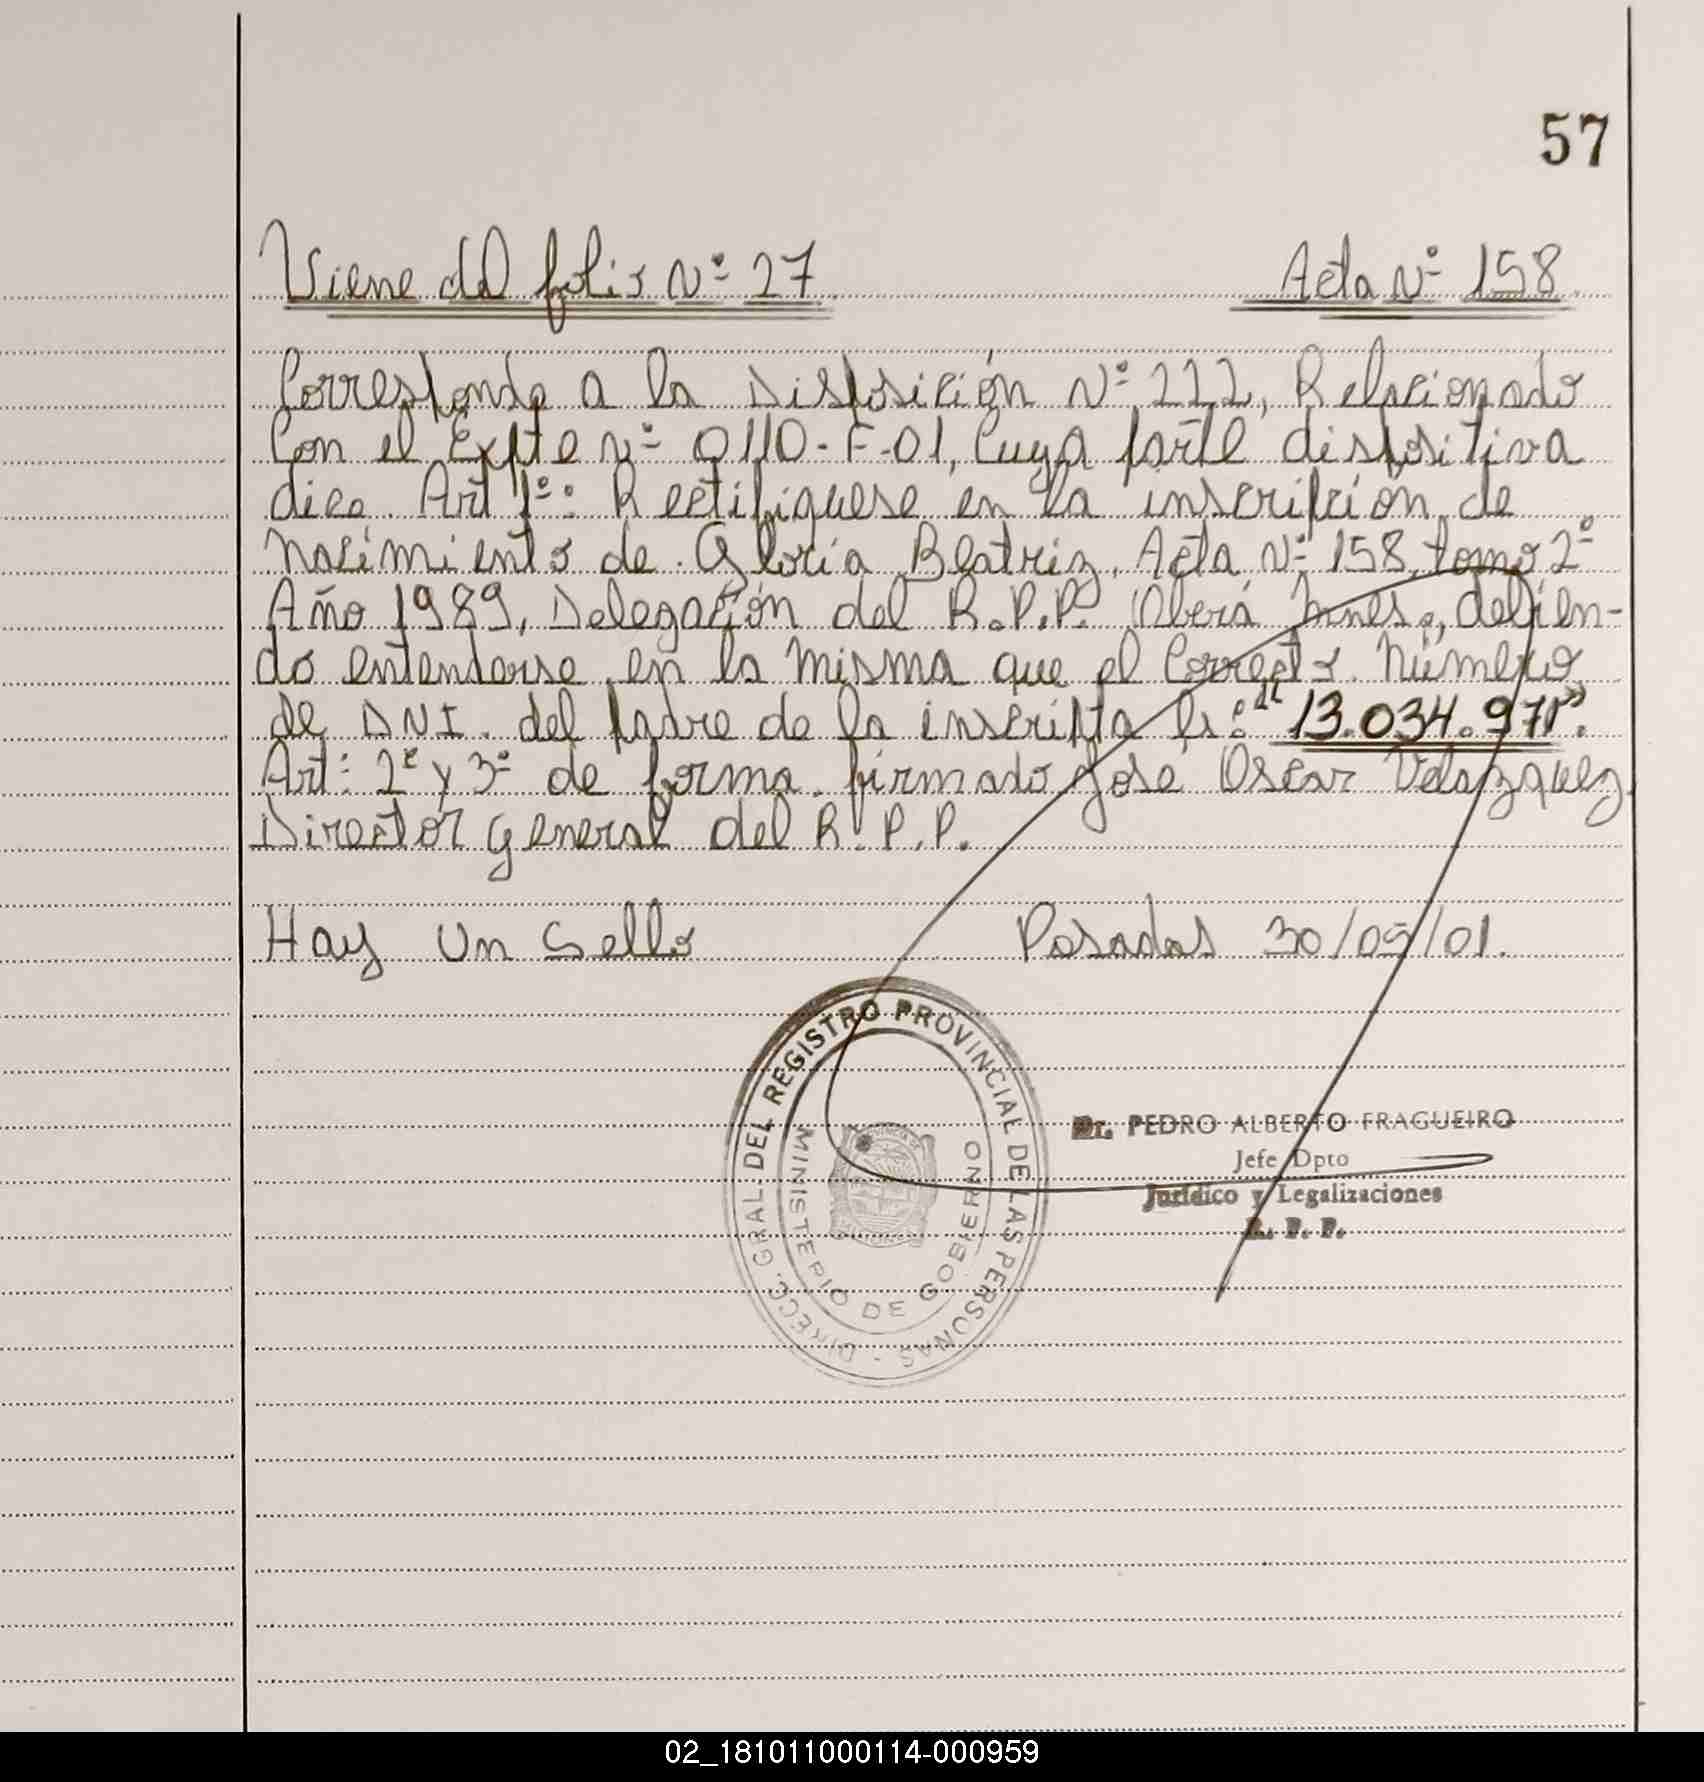 57
Viene del folio Nº 27
Acta Nº 158
Corresponde a la Disposición Nº 222, Relacionado
Con el Expte nº 0110-F-01, Cuya parte dispositiva
dice. Art 1º: Rectifiquese en la inscripción de
nacimiento de Gloria Beatriz, Acta Nº 158, tomo 2º
Año 1989, Delegación del R.P.P. Oberá Mnes., debien-
do entenderse en la misma que el Correcto Número
de DNI. del padre de la inscripta es: "13.034.971".
Art: 2º y 3º de forma. firmado José Oscar Velazquez
Director General del R.P.P.
Hay Un Sello
Posadas 30/05/01.
DIRECC. GRAL. DEL REGISTRO PROVINCIAL DE LAS PERSONAS -
MINISTERIO DE GOBIERNO
Dr. PEDRO ALBERTO FRAGUEIRO
Jefe Dpto
Jurídico y Legalizaciones
R. P. P.
02_181011000114-000959